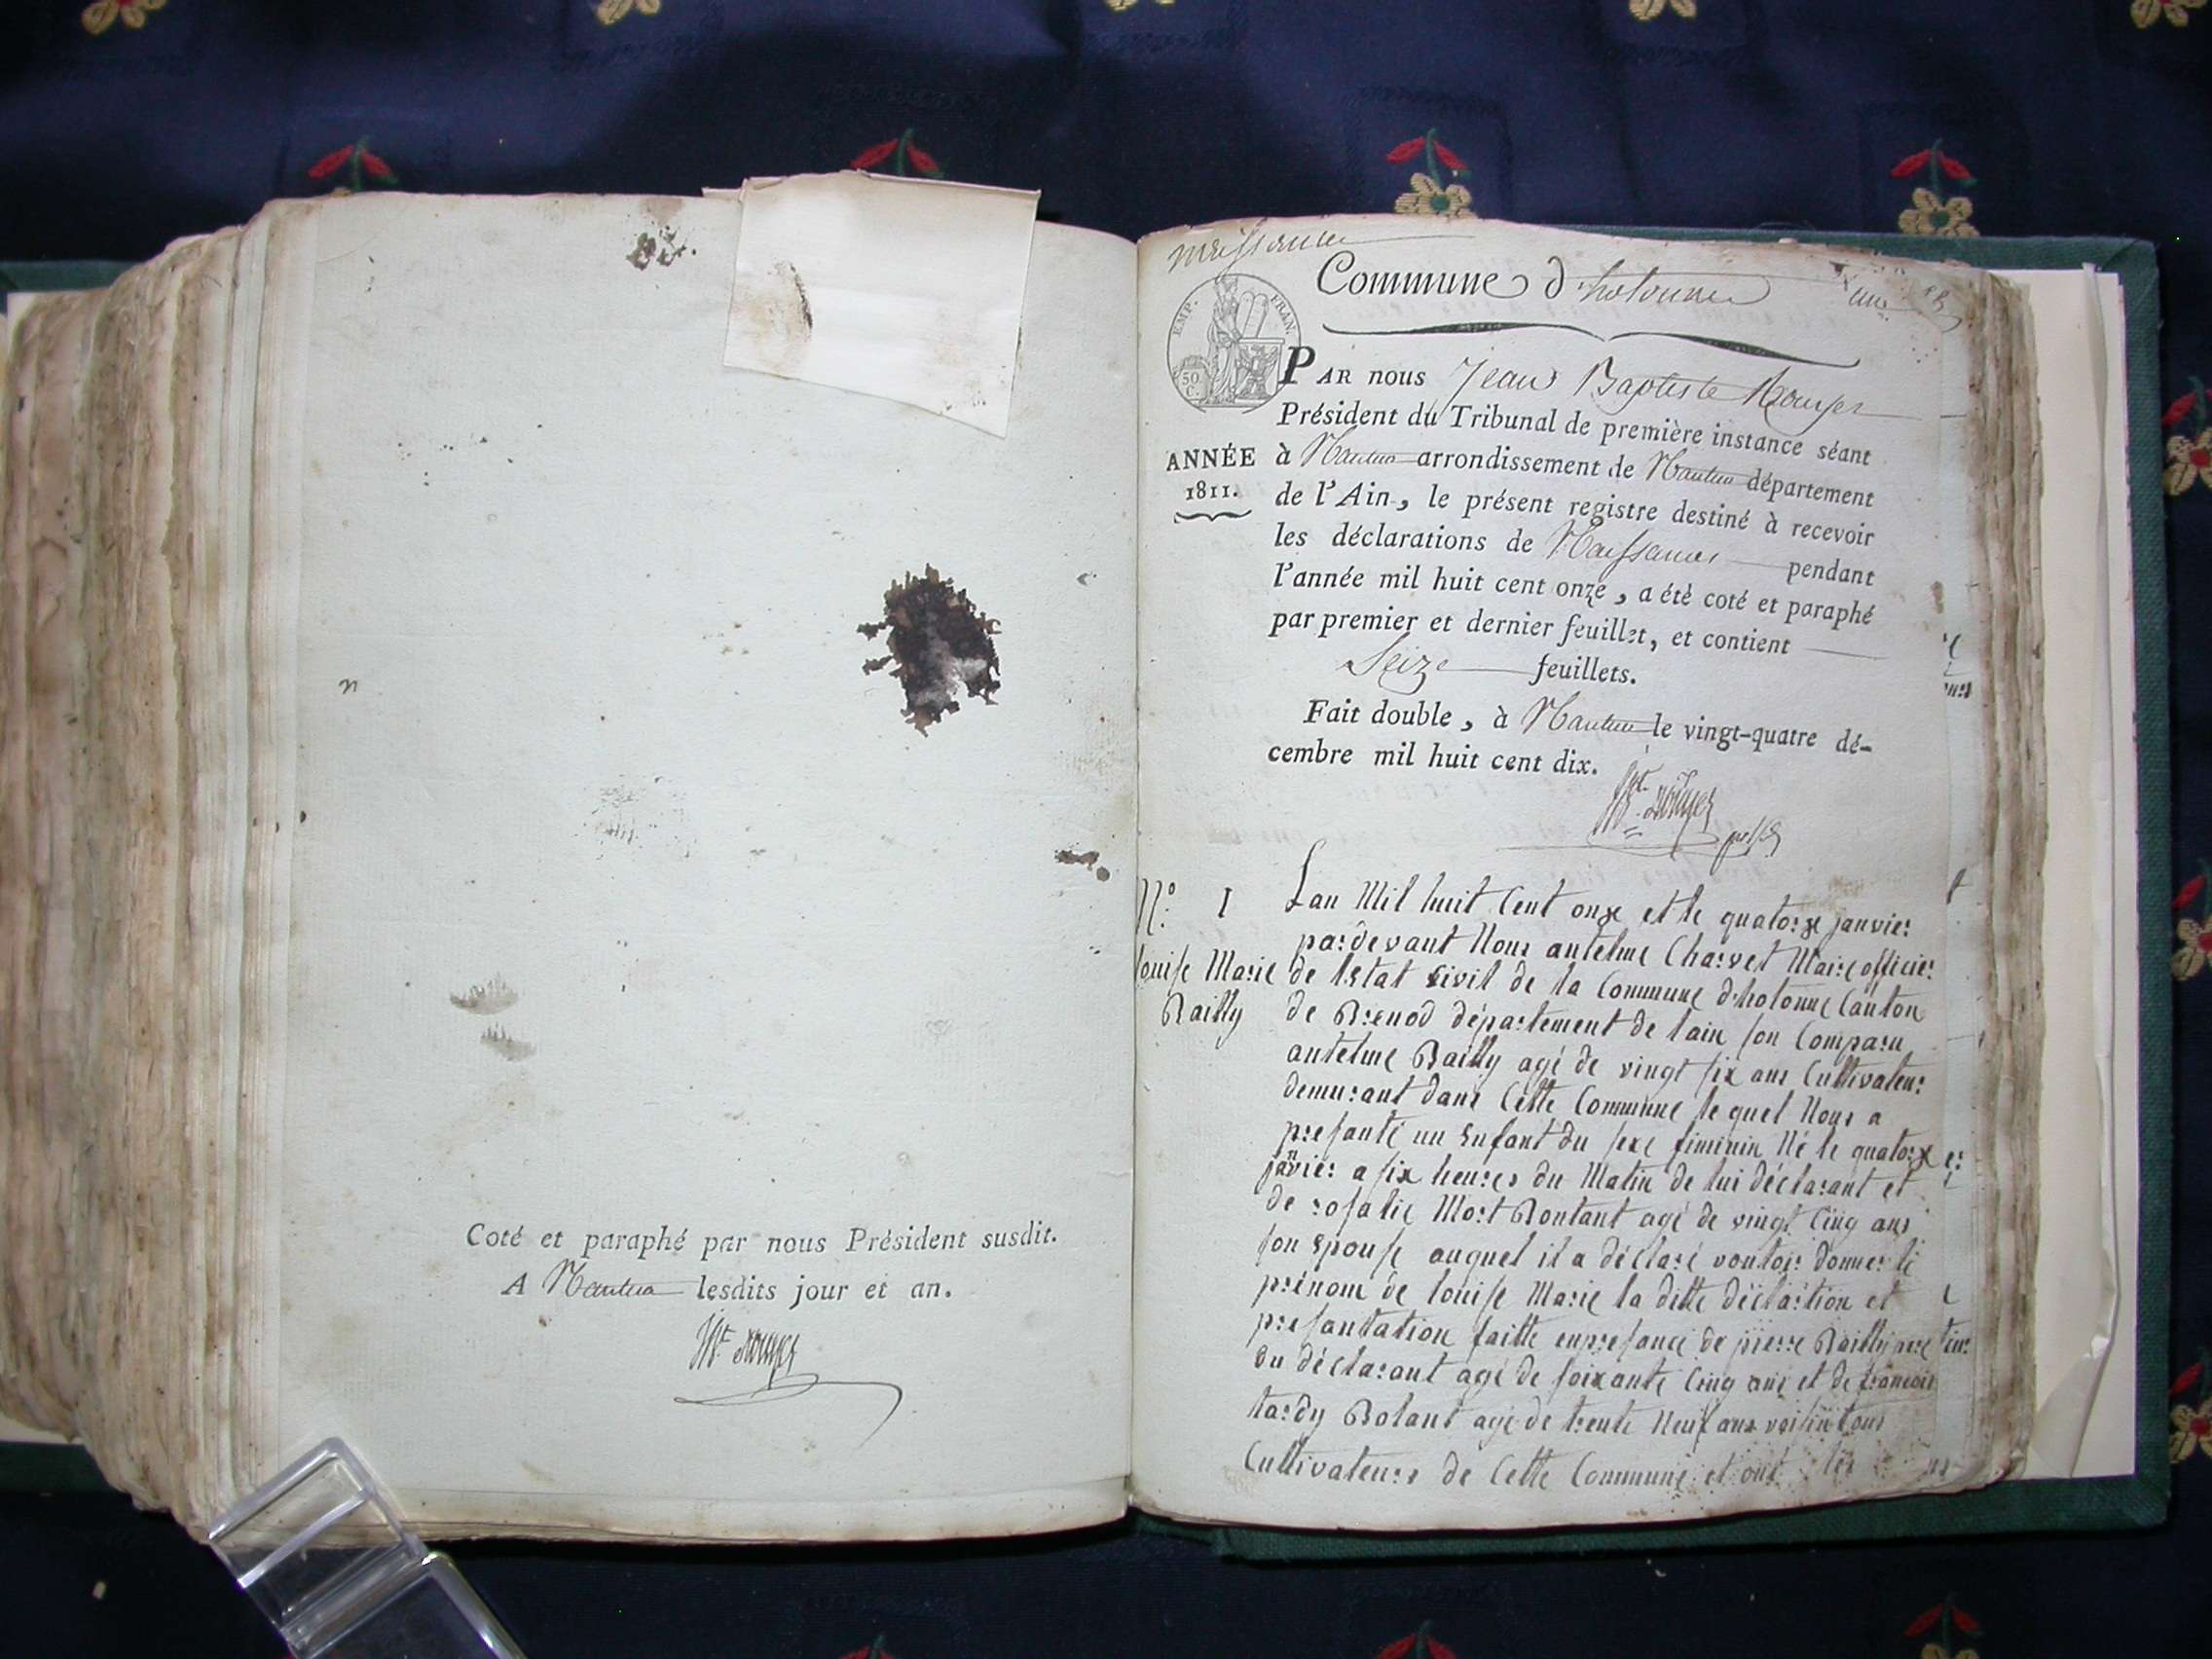 n
Coté et paraphé par nous Président susdit.
A Nantua lesdits jour et an.
naissance
Commune d'hotonne
EMP. FRAN.
50 C.
PAR nous Jean Baptiste Rouyer
Président du Tribunal de première instance séant
ANNÉE
1811.
à Nantua arrondissement de Nantua département
de l'Ain, le présent registre destiné à recevoir
les déclarations de Naissances pendant
l'année mil huit cent onze, a été coté et paraphé
par premier et dernier feuillet, et contient
Seize feuillets.
Fait double, à Nantua le vingt-quatre dé-
cembre mil huit cent dix.
N.° 1
louise Marie
Bailly
Lan Mil huit Cent onze et le quatorze janvier
pardevant Nous antelme Charvet Maire officier
de lEtat Civil de la Commune d'hotonne Canton
de Brenod département de lain son Comparu
antelme Bailly agé de vingt six ans Cultivateur
demurant dans Cette Commune le quel Nous a
presanté un Enfant du sexe fiminin Né le quatorze
janvier a six heures du Matin de lui déclarant et
de rosalie Mort Rontant agé de vingt Cinq ans
son Epouse auquel il a déclaré vouloir donner le
prénom de louise Marie la ditte déclartion et
presantation faitte enpresance de pierre Bailly pere
du déclarant agé de soixante Cinq ans et de francois
tardy Bolant agé de trente Neuf ans voisin tous
Cultivateurs de Cette Commune et ont